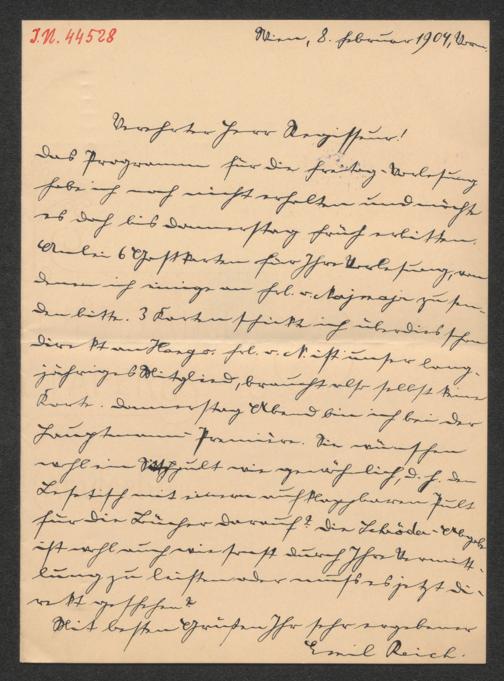 I.N. 44528
Wien, 8. Februar 1904, Vorm.
Verehrter Herr Regisseur!
Das Programm für die Freitag-Vorlesung
habe ich noch nicht erhalten und möcht
es doch bis Donnerstag früh erbitten.
Anbei 6 Gastkarten für Ihre Vorlesung, von
denen ich einige an Frl. v. Najmajer zu sen-
den bitte. 3 Karten schickt ich überdies schon
direkt an Fr. v. N. ist unser lang-
jähriges Mitglied, braucht also selbst keine
Karte. Donnerstag Abend bin ich bei der
Hauptmann-Première. Sie wünschen
wohl ein Sitzpult wie gewöhnlich, d. h. den
Lesetisch mit einem aufklappbaren Pult
für die Bücher darauf? Die Abgabe
ist wohl auch wie sonst durch Ihre Vermitt-
lung zu leisten oder muss es jetzt di-
rekt geschehen?
Mit besten Grüßen Ihr sehr ergebener
Emil Reich.